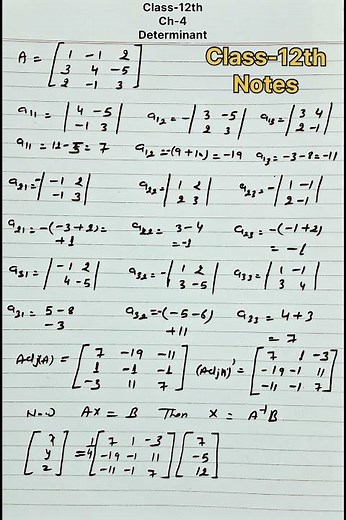 Class-12th
Ch-4
Determinant
Class-12th
Notes
A = [ 1 -1 2
3 4 -5
2 -1 3 ]
a11 = | 4 -5
-1 3 | a12 = - | 3 -5
2 3 | a13 = | 3 4
2 -1 |
a11 = 12-5 = 7 a12 = -(9+10) = -19 a13 = -3-8 = -11
a21 = - | -1 2
-1 3 | a22 = | 1 2
2 3 | a23 = - | 1 -1
2 -1 |
a21 = -(-3+2) = +1 a22 = 3-4 = -1 a23 = -(-1+2) = -1
a31 = | -1 2
4 -5 | a32 = - | 1 2
3 -5 | a33 = | 1 -1
3 4 |
a31 = 5-8 -3 a32 = -(-5-6) +11 a33 = 4+3 = 7
Adj(A) = [ 7 -19 -11
1 -1 -1
-3 11 7 ] (Adj A)' = [ 7 1 -3
-19 -1 11
-11 -1 7 ]
Now AX = B Then X = A⁻¹B
[ x
y
z ] = 1/4 [ 7 1 -3
-19 -1 11
-11 -1 7 ] [ 7
-5
12 ]